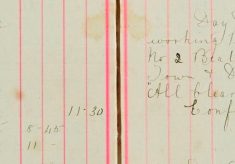 11-30
8-45
11-
Day
working
No 2 Beat
Town &
All clear
Conf